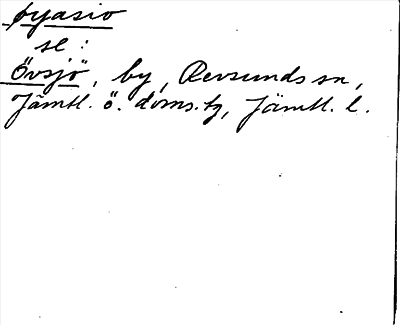 þyasio
se :
Övsjö, by, Revsunds sn,
Jämtl. ö. doms.tg, Jämtl. l.